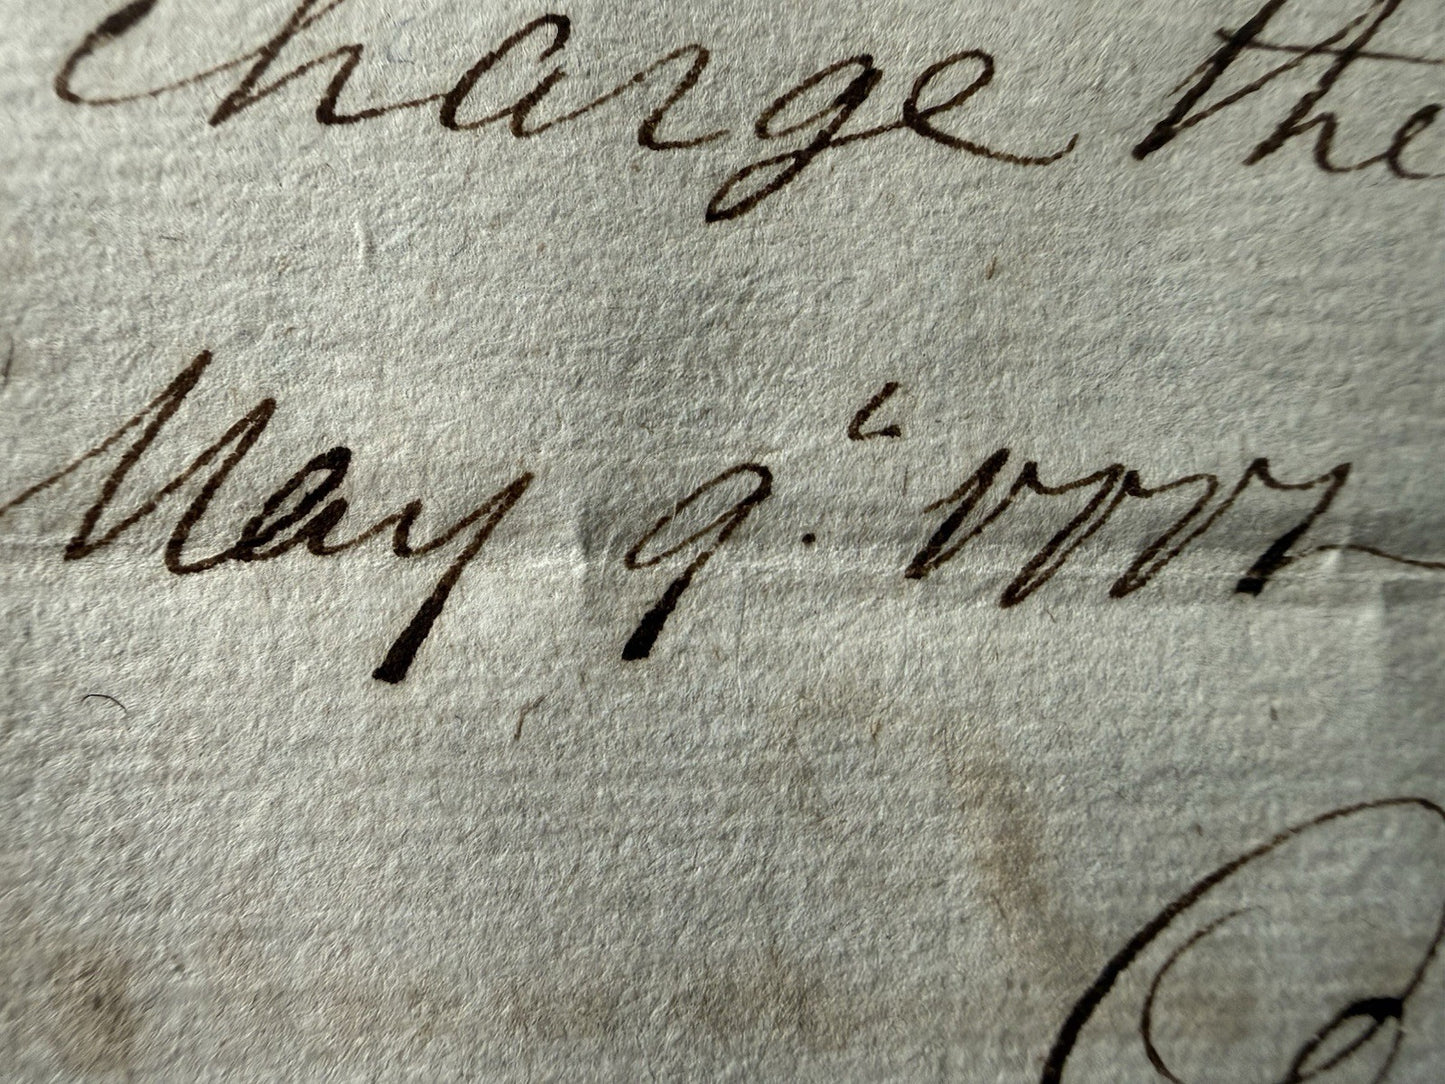 Charge the
May 9. " 1777